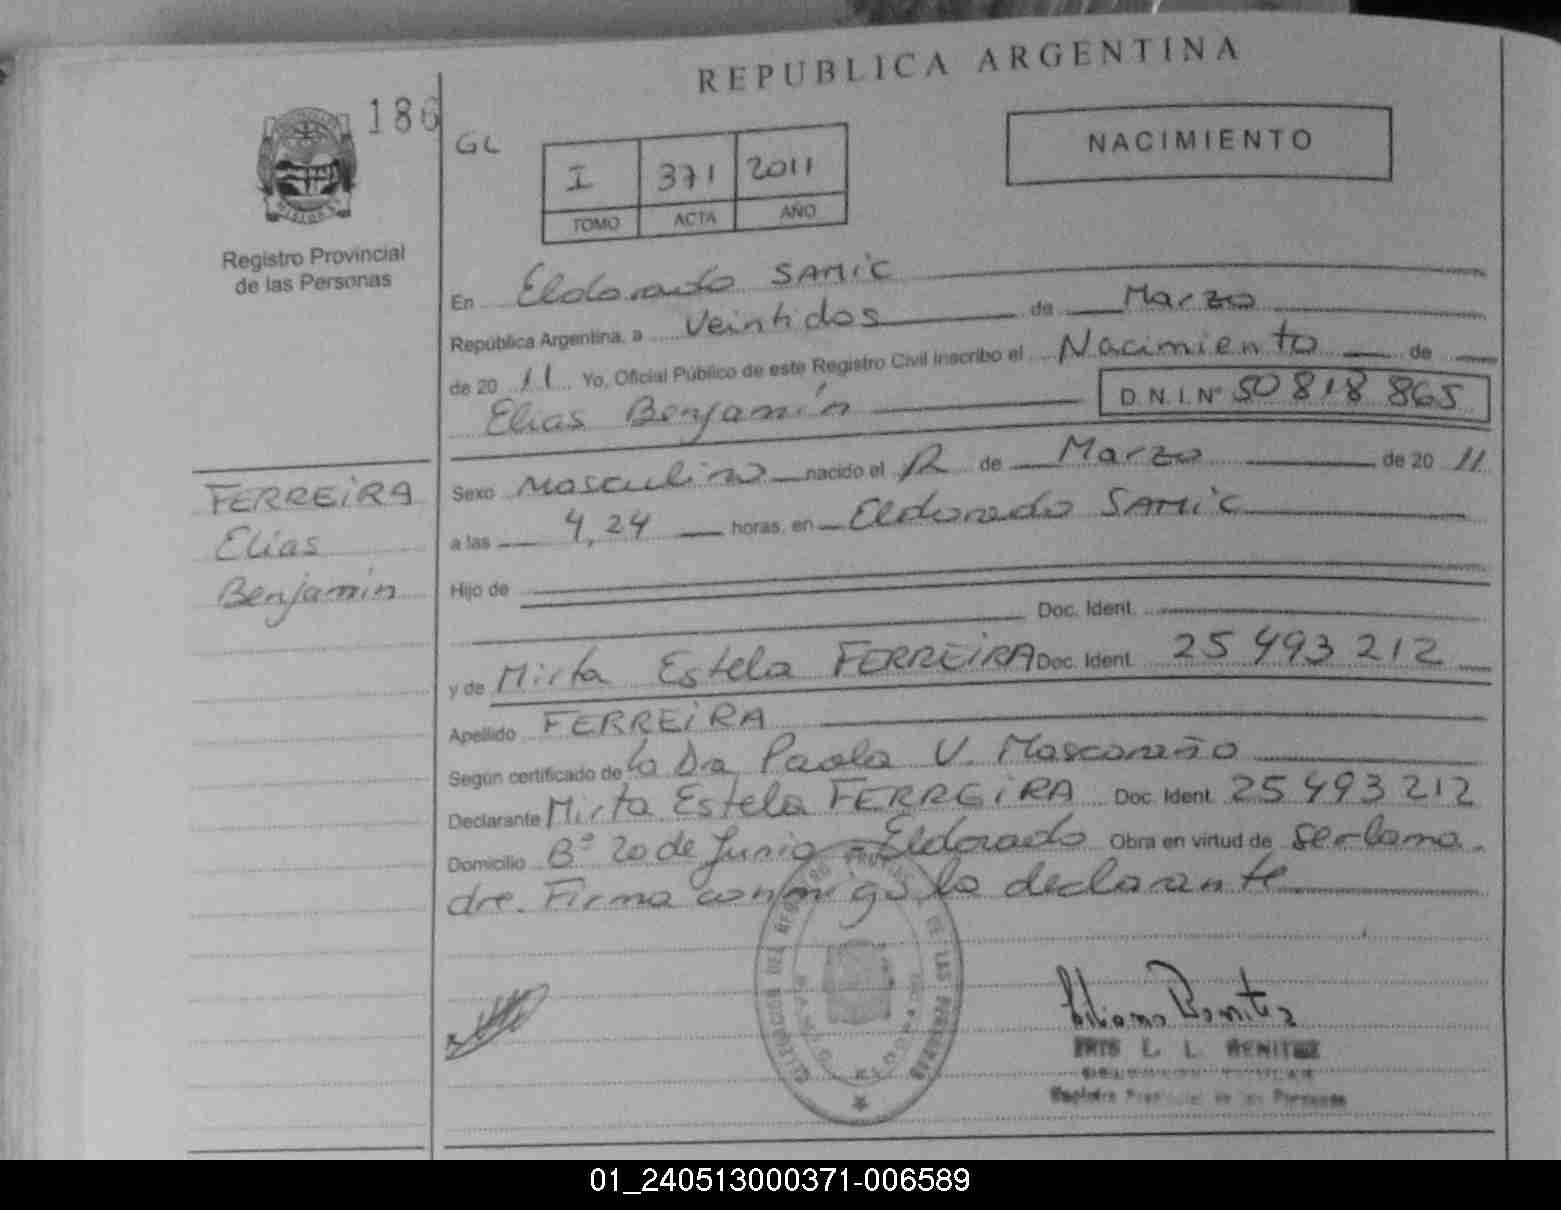 REPUBLICA ARGENTINA
186
GL
NACIMIENTO
I 371 2011
TOMO ACTA AÑO
Registro Provincial
de las Personas
En Eldorado SAMiC
República Argentina, a Veintidos de Marzo
de 20 11 Yo, Oficial Público de este Registro Civil inscribo el Nacimiento de
Elias Benjamín D.N.I.Nº 50 818 865
Sexo Masculino nacido el 12 de Marzo de 20 11
a las 4,24 horas, en Eldorado SAMiC
FERREiRA
Elias
Benjamín
Hijo de
Doc. Ident.
y de Mirta Estela FERREiRA Doc. Ident. 25 493 212
Apellido FERREiRA
Según certificado de la Dra Paola V. Mascareño
Declarante Mirta Estela FERREiRA Doc. Ident. 25 493 212
Domicilio Bº 20 de Junio - Eldorado Obra en virtud de ser la ma-
dre. Firma conmigo la declarante
DELEGACION DEL REGISTRO PROVINCIAL DE LAS PERSONAS
ELDORADO
Liliana Benitez
L. L. BENITEZ
Registro Provincial de las Personas
01_240513000371-006589